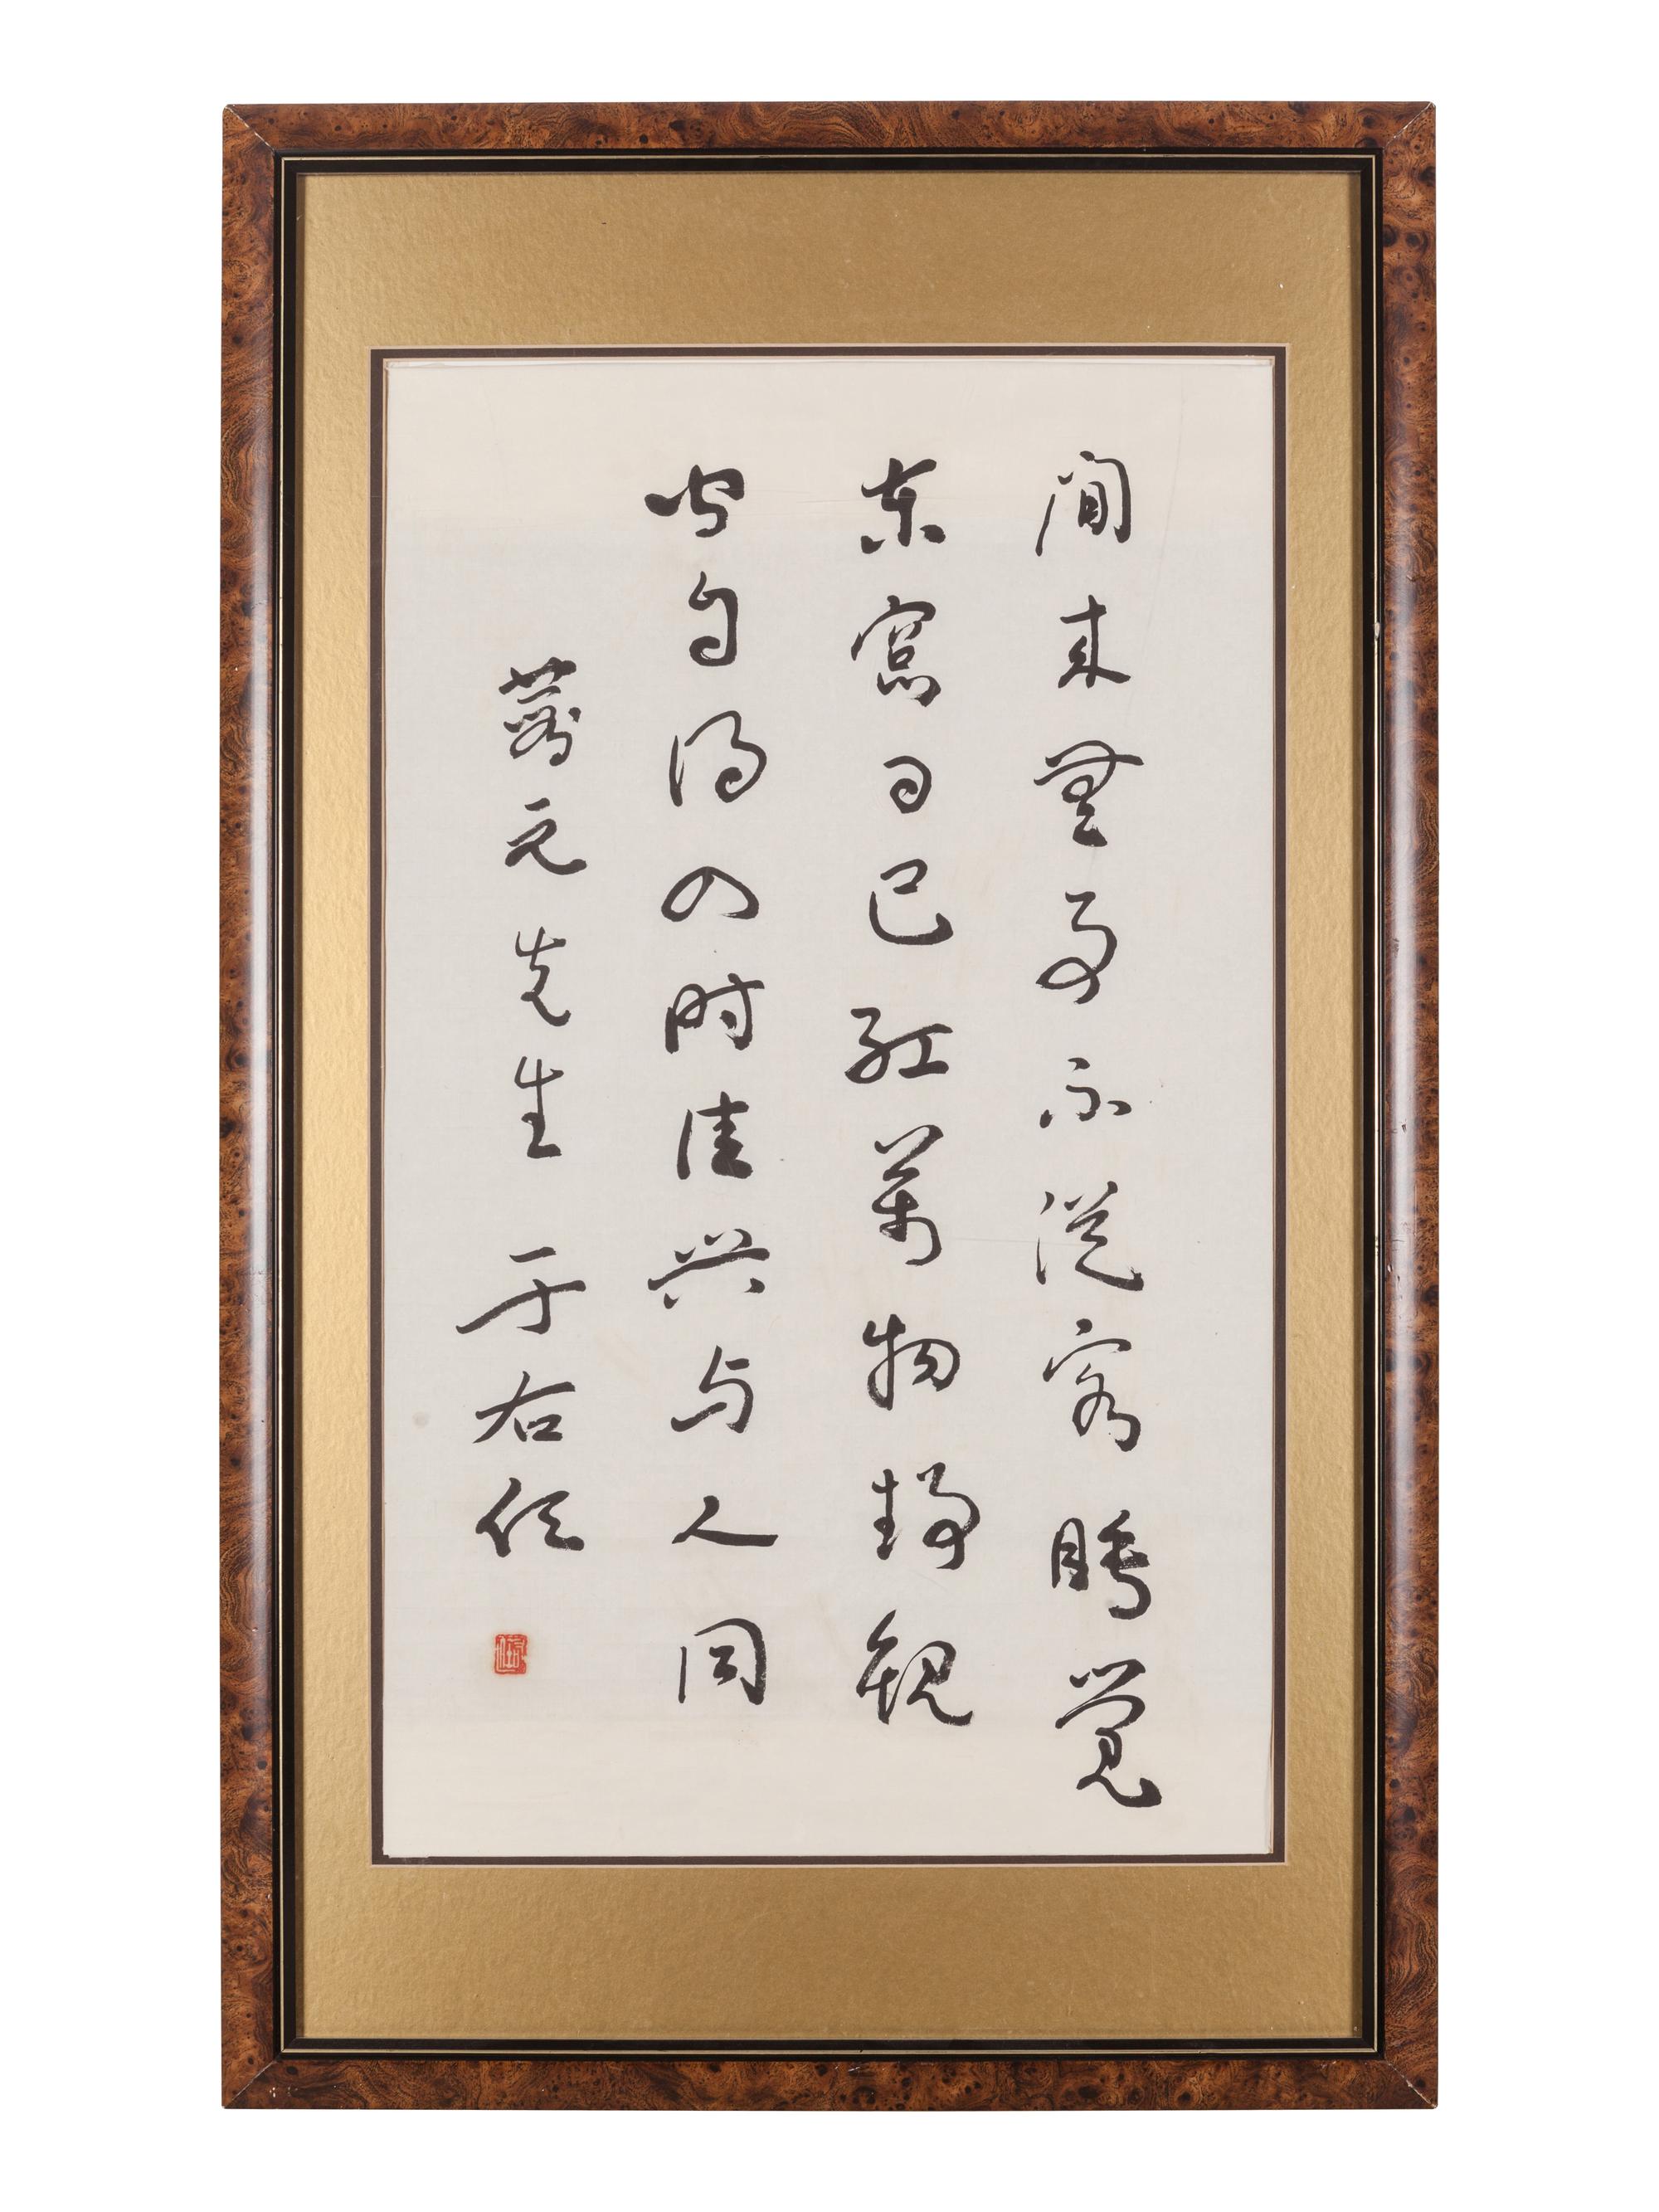 閒來無事不從容睡覺
東窗日已紅萬物靜觀
皆自得四時佳興與人同
元先生 于右任
右任